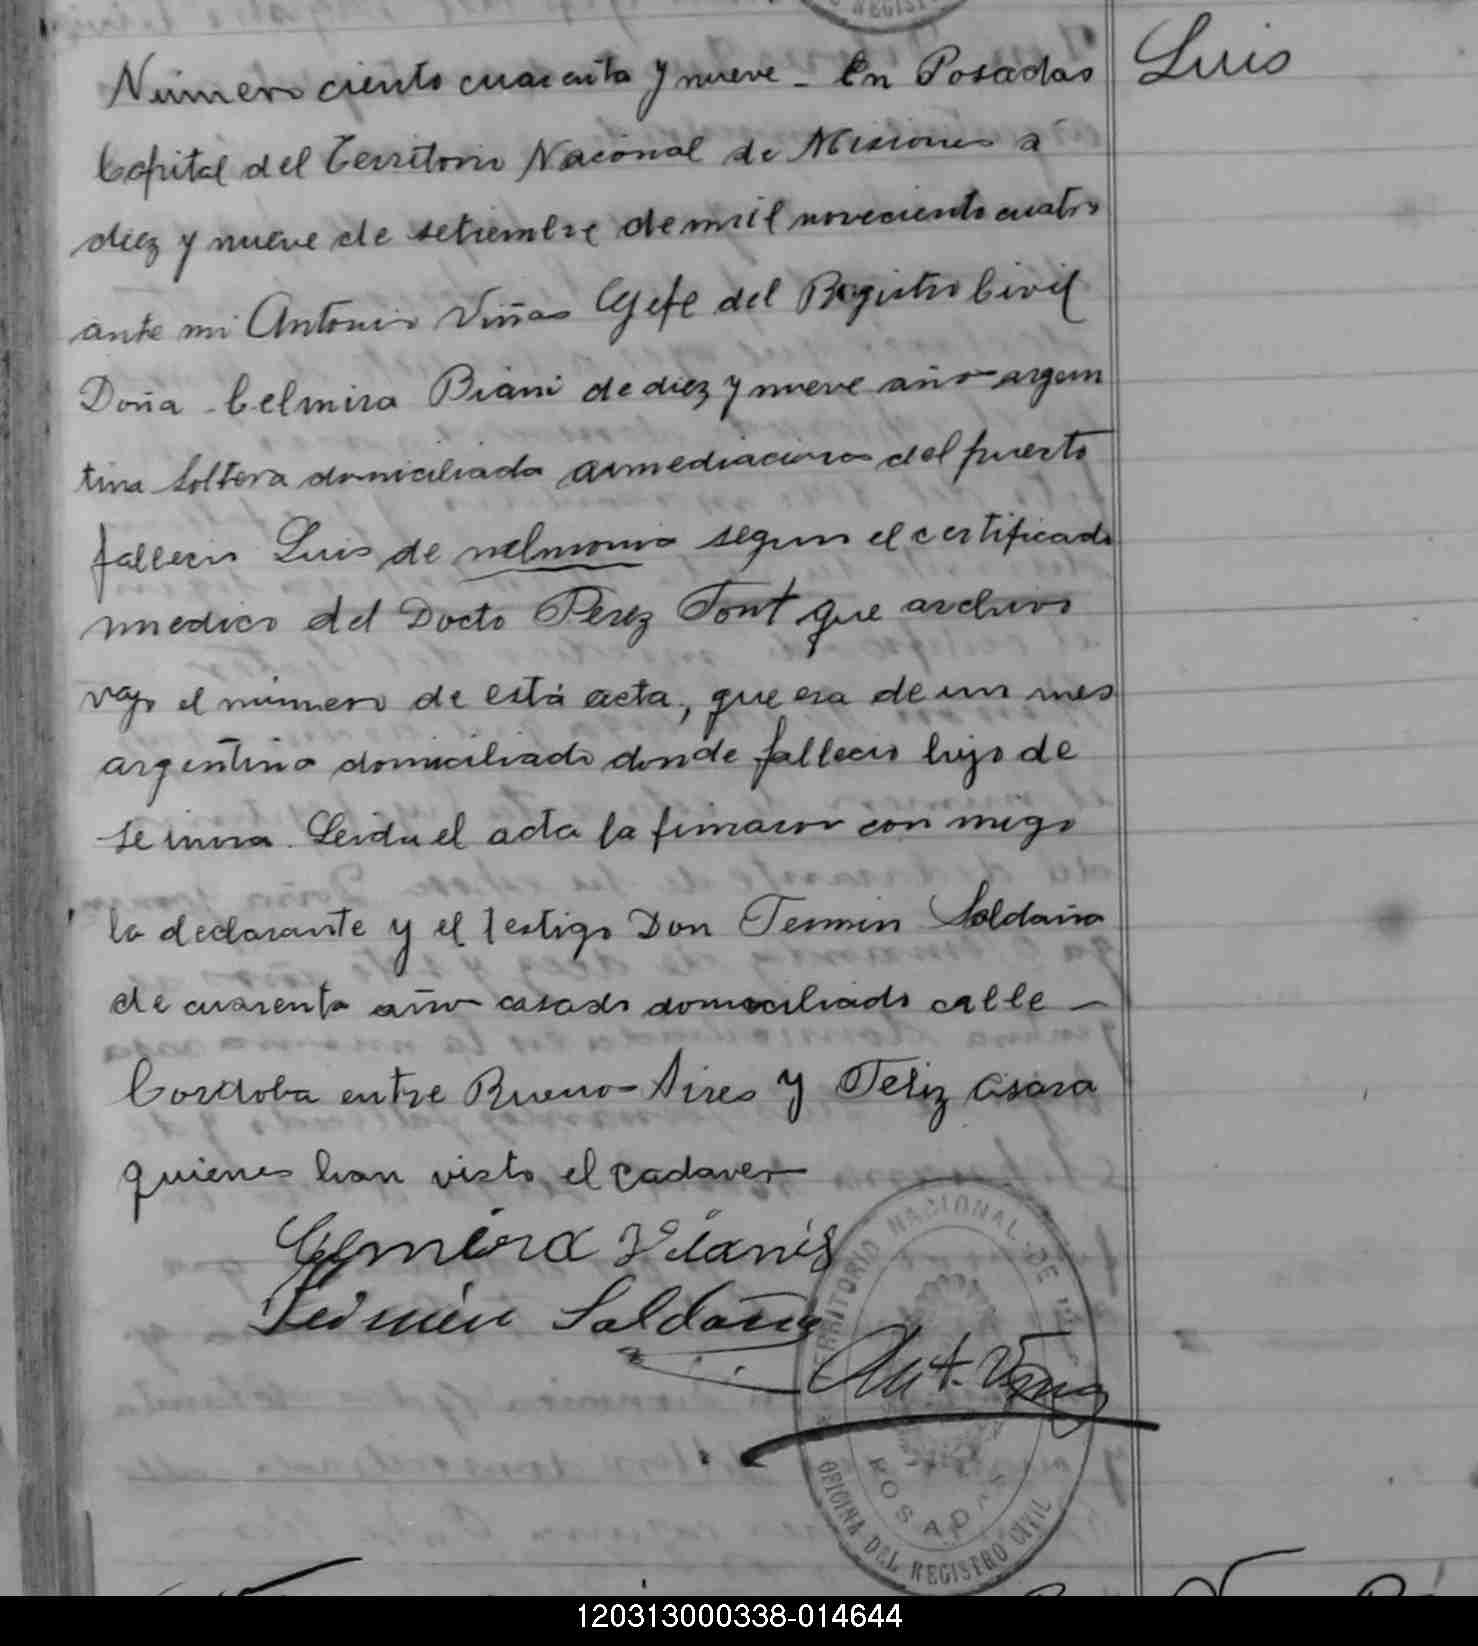 Luis
Número ciento cuarenta y nueve - En Posadas
Capital del Territorio Nacional de Misiones a
diez y nueve de setiembre de mil noveciento cuatro
ante mi Antonio Viñas Gefe del Registro Civil
Doña Celmira Biani de diez y nueve año argen
tina Soltera domiciliada aimediaciones del puerto
fallecio Luis de nelmonia segun el certificado
medico del Docto Perez Font que archivo
vajo el número de está acta, que era de un mes
argentino domiciliado donde fallecio hijo de
Leida el acta la firmaron con migo
la declarante y el testigo Don Fermin Saldaña
de cuarenta año casado domiciliado calle -
Cordoba entre Bueno-Aires y Feliz Asara
quienes han visto el cadaver
Celmira Vianis
Fermin Saldaña
Ant. Viñas
TERRITORIO NACIONAL DE
POSADAS
OFICINA DEL REGISTRO CIVIL
120313000338-014644